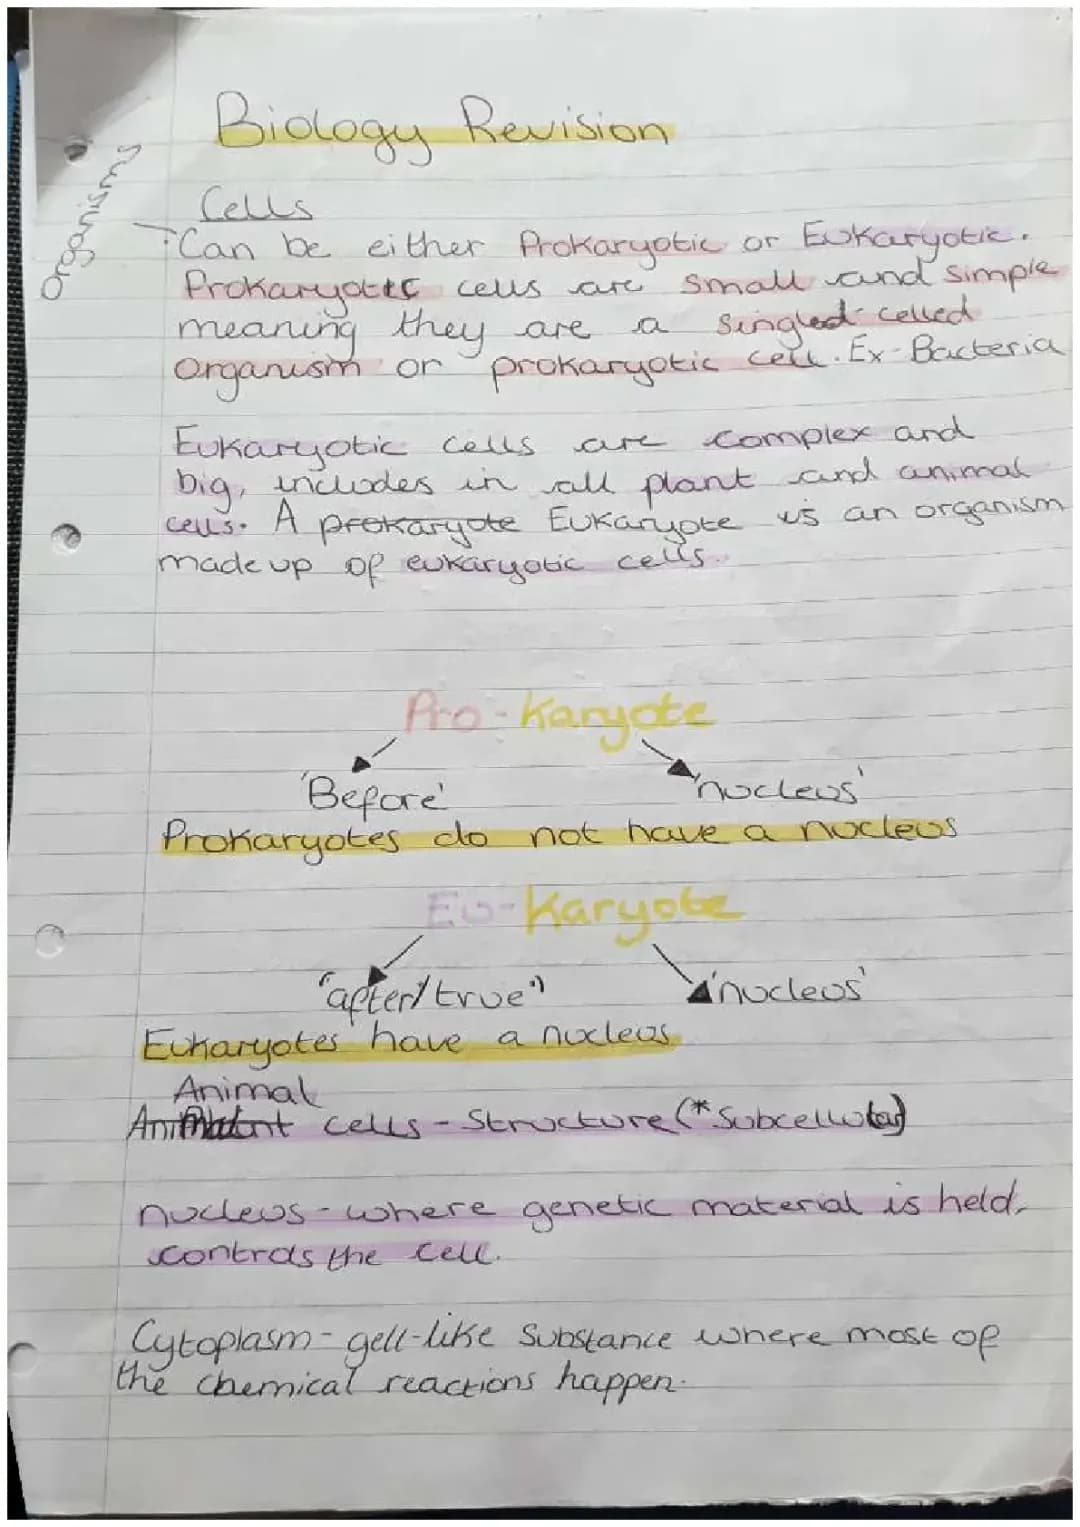 Biology Revision
Organisms
Cells
Can be either Prokaryotic or Eukaryotic.
Prokaryotic cells are small and simple
meaning they are a singled-celled
organism or prokaryotic cell. Ex-Bacteria
Eukaryotic cells are complex and
big, includes in all plant and animal
cells. A prokaryote Eukaryote is an organism
made up of eukaryotic cells.
Pro-Karyote
'Before' 'nucleus'
Prokaryotes do not have a nucleus
Eu-Karyote
'after/true' 'nucleus'
Eukaryotes have a nucleus
Animal
cells - Structure (*Subcellular)
nucleus - where genetic material is held,
controls the cell.
Cytoplasm - gell-like substance where most of
the chemical reactions happen.